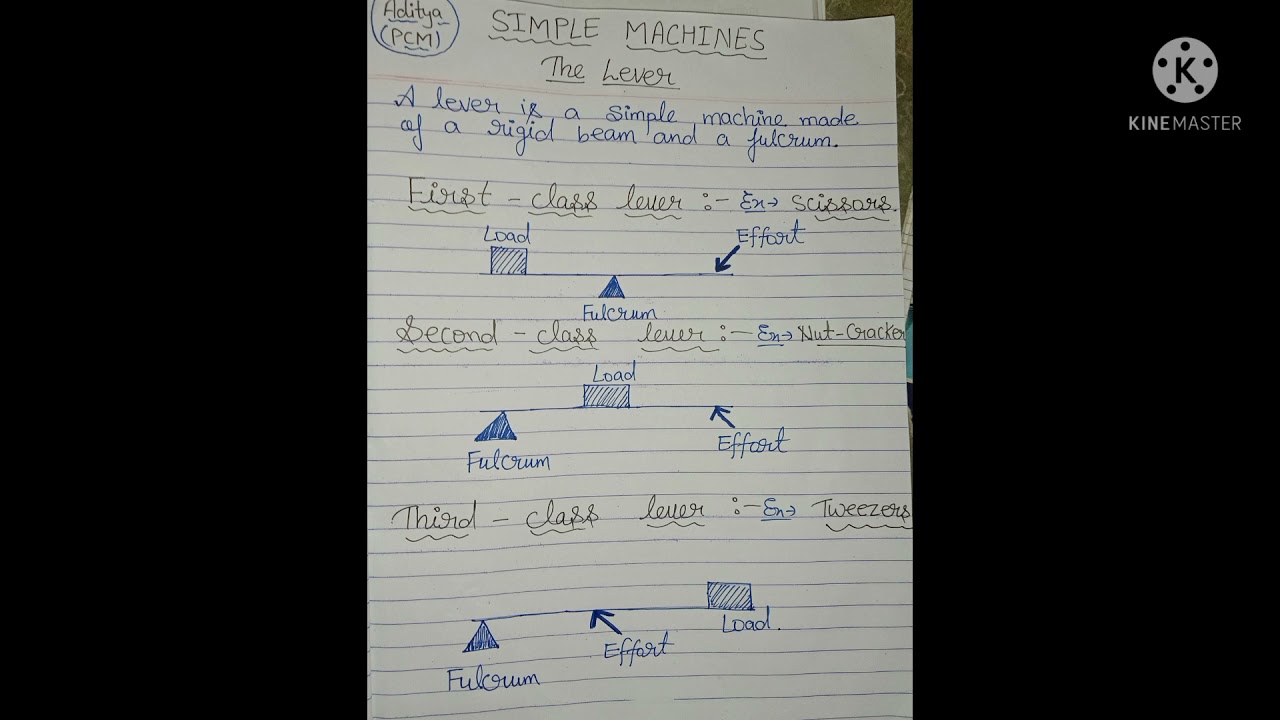 Aditya
(PCM)
SIMPLE MACHINES
The Lever
A lever is a simple machine made
of a rigid beam and a fulcrum.
First - class lever :- Ex→ Scissors.
Load
Effort
Fulcrum
Second - class lever :- Ex→ Nut-Cracker
Load
Effort
Fulcrum
Third - class lever :- Ex→ Tweezers
Load.
Effort
Fulcrum
KINEMASTER